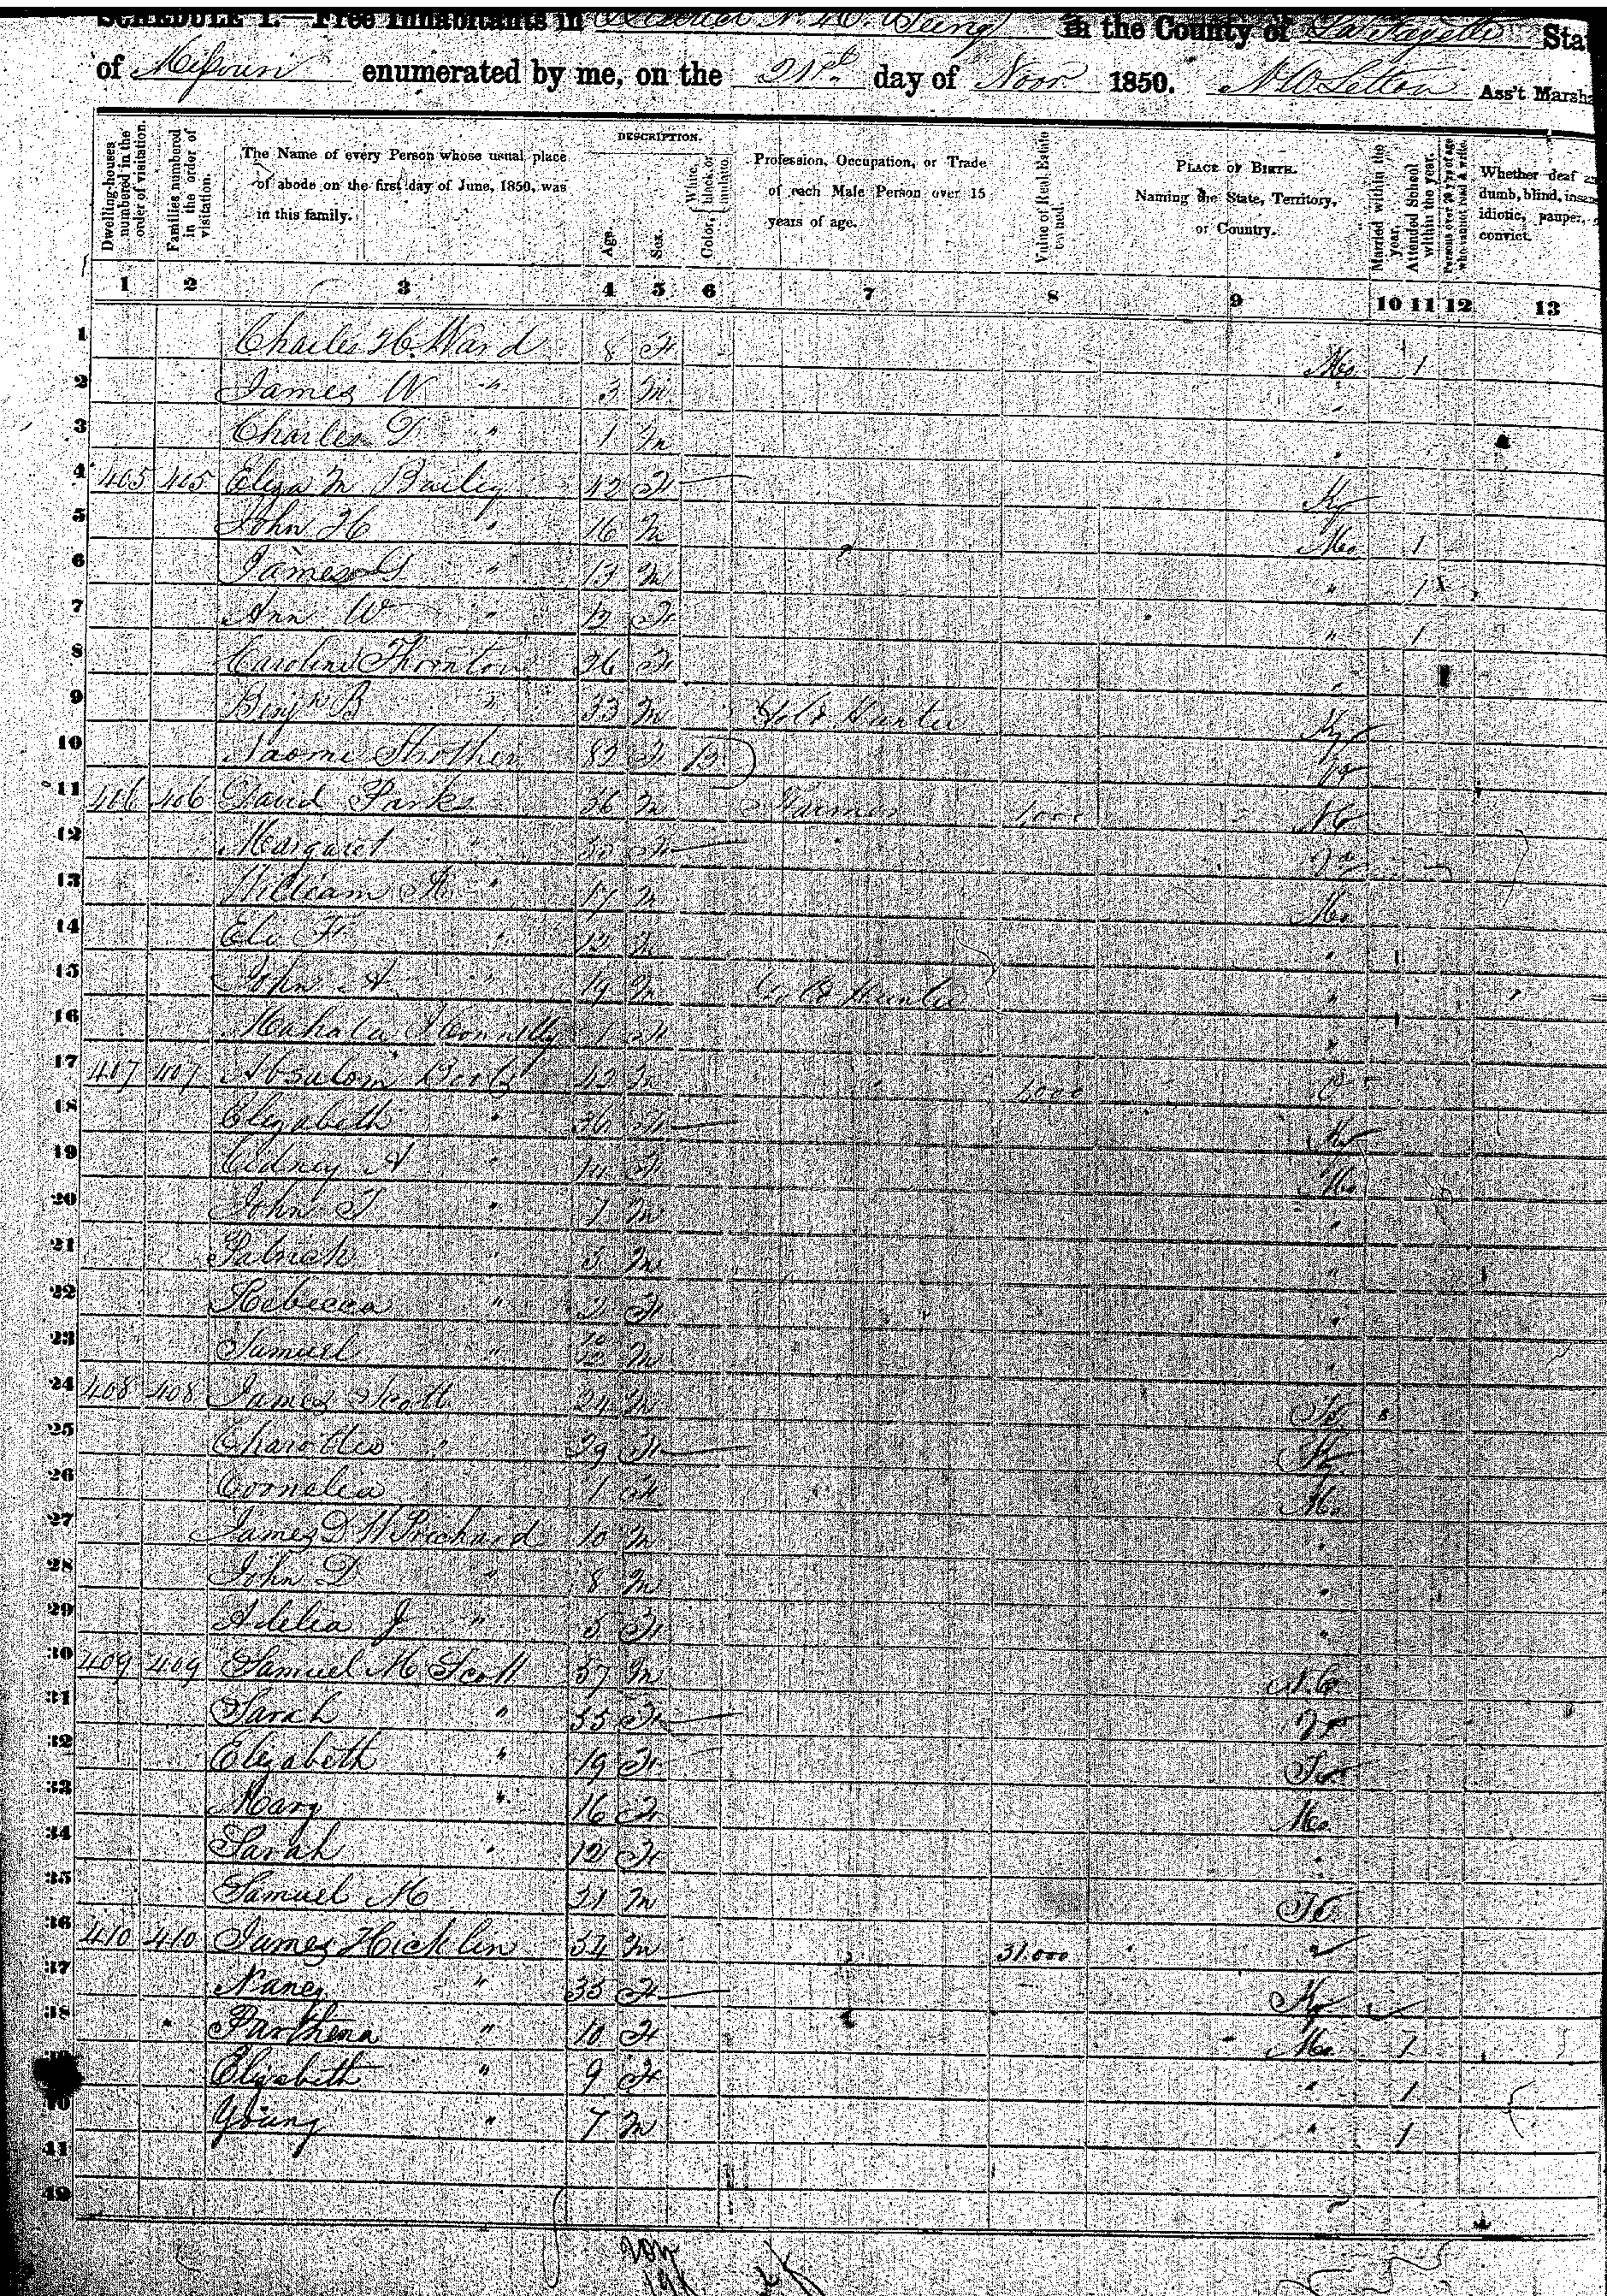 SCHEDULE I.—Free Inhabitants in District No 46. Being in the County of La Fayette State
of Missouri enumerated by me, on the 21st day of Novr 1850. Ass't Marsha
Dwelling-houses numbered in the order of visitation.
Families numbered in the order of visitation.
The Name of every Person whose usual place of abode on the first day of June, 1850, was in this family.
DESCRIPTION.
Age.
Sex.
Color, White, black, or mulatto.
Profession, Occupation, or Trade of each Male Person over 15 years of age.
Value of Real Estate owned.
PLACE OF BIRTH.
Naming the State, Territory, or Country.
Married within the year.
Attended School within the year.
Persons over 20 y'rs of age who cannot read & write.
Whether deaf and dumb, blind, insane, idiotic, pauper, convict.
1 2 3 4 5 6 7 8 9 10 11 12 13
1 Charles H. Ward 8 F Mo 1
2 James W " 3 M "
3 Charles T " 1 M "
4 405 405 Eliza M Bailey 42 F Ky
5 John H " 16 M Mo 1
6 James G " 13 M " 1
7 Ann W " 12 F " 1
8 Caroline Thornton 26 F "
9 Benjn B " 33 M Gold Hunter Ky
10 Naomi Strother 82 F B Va
11 406 406 David Parks 56 M Farmer 1000 NC
12 Margaret " F Va
13 William A " 17 M Mo
14 Eli F " 12 M " 1
15 John A " 19 M Gold Hunter "
16 Mahala Connelly 1 F "
17 407 407 Absalom 43 M " 1000
18 Elizabeth " 36 F Ky
19 Cidney A " F Mo
20 John T " 7 M "
21 Patrick " 5 M "
22 Rebecca " 2 F "
23 Samuel " M "
24 408 408 James Scott 24 M Te
25 Charottee " 29 F
26 Cornelia 1 F Mo
27 James D W Prichard 10 M "
28 John D " 8 M "
29 Adelia J " 5 F "
30 409 409 Samuel M Scott 57 M N.C
31 Sarah " 55 F Va
32 Elizabeth " 19 F Te
33 Mary " 16 F Mo
34 Sarah " 12 F "
35 Samuel M 21 M Te
36 410 410 James Hicklin 34 M 31.000 "
37 Nancy " 35 F Ky
38 Parthena " 10 F Mo 1
Elizabeth " 9 F " 1
40 Young " 7 M " 1
41
42